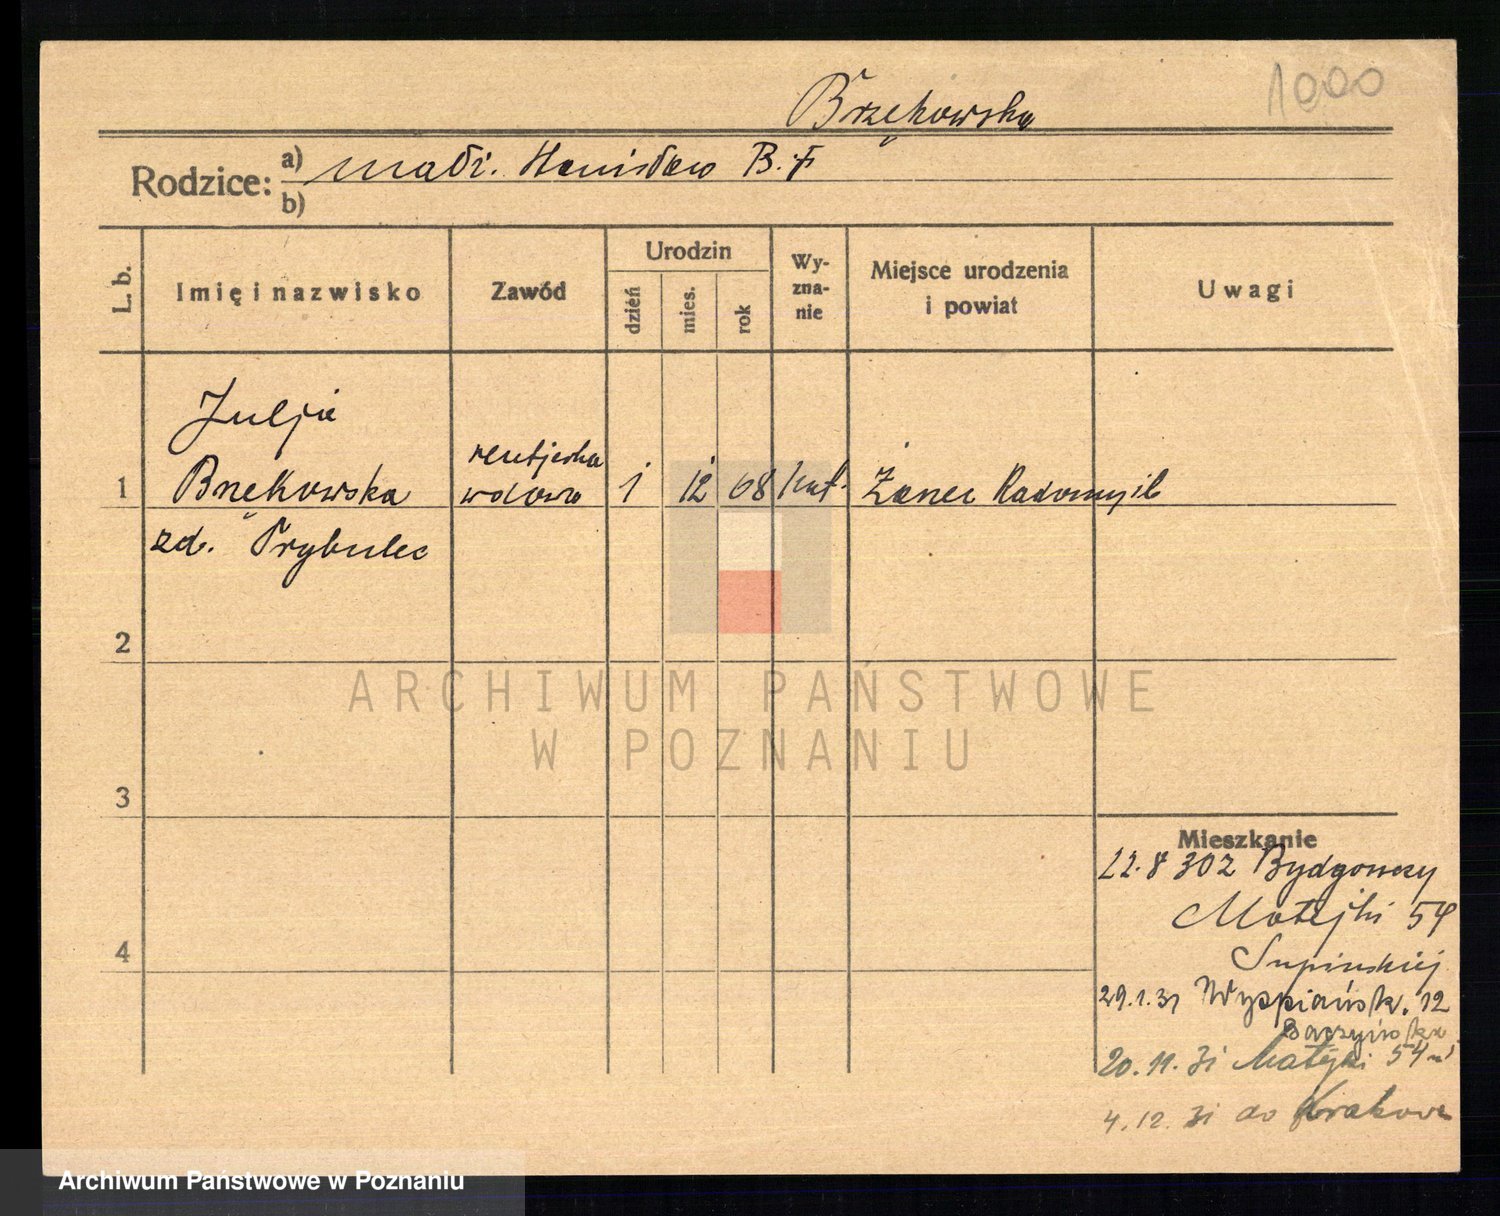 1000
Brzękowska
Rodzice: a) małż. Stanisław B. F
b)
L. b.
Imię i nazwisko
Zawód
Urodzin
dzień
mies.
rok
Wy-
zna-
nie
Miejsce urodzenia
i powiat
Uwagi
Julja
1 Brzękowska rentjerka wdowa 1 12 68 kat. Żarec Radomyśl
zd. Trybulec
2
3
4
Mieszkanie
22.8 30 z Bydgoszczy
Matejki 54
Supińskiej
29.1.31 Wyspiańsk. 12
Baczyńska
20.11.31 Matejki 54
4.12.31 do Krakowa
ARCHIWUM PAŃSTWOWE
W POZNANIU
Archiwum Państwowe w Poznaniu